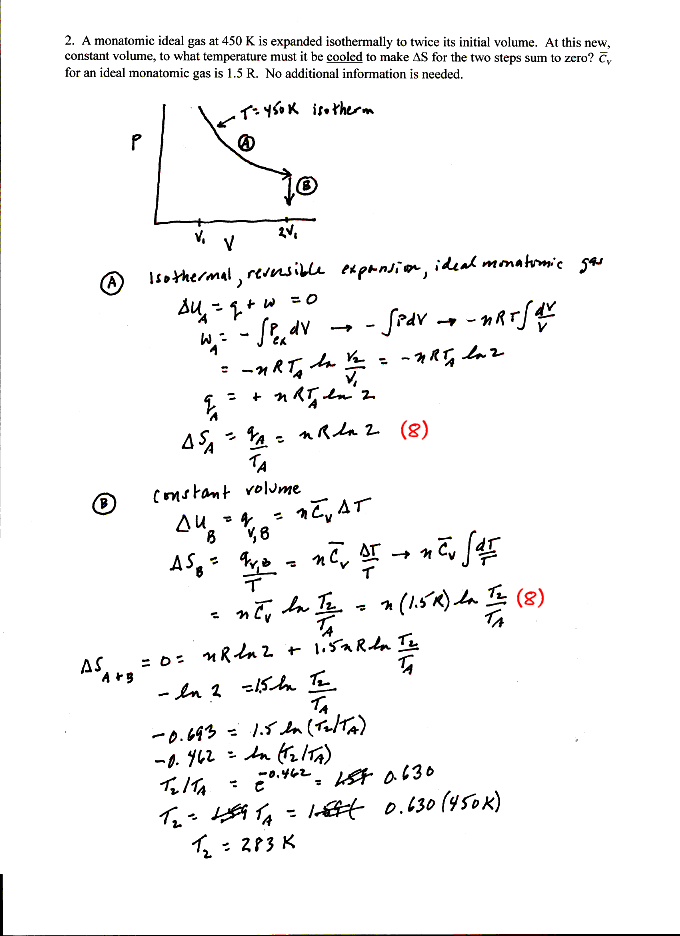 2. A monatomic ideal gas at 450 K is expanded isothermally to twice its initial volume. At this new,
constant volume, to what temperature must it be cooled to make ΔS for the two steps sum to zero? C̅ᵥ
for an ideal monatomic gas is 1.5 R. No additional information is needed.
T=450K isotherm
P
Ⓐ
Ⓑ
V₁ V 2V₁
Ⓐ Isothermal, reversible expansion, ideal monatomic gas
ΔU_A = q + w = 0
w_A = -∫P_ex dV → -∫PdV → -nRT∫dV/V
= -nRT_A ln V₂/V₁ = -nRT_A ln 2
q_A = + nRT_A ln 2
ΔS_A = q_A/T_A = nR ln 2 (8)
Ⓑ Constant volume
ΔU_B = q_V,B = nC̅ᵥΔT
ΔS_B = q_V,B/T = nC̅ᵥ ΔT/T → nC̅ᵥ ∫dT/T
= nC̅ᵥ ln T₂/T_A = n(1.5R) ln T₂/T_A (8)
ΔS_A+B = 0 = nR ln 2 + 1.5nR ln T₂/T_A
-ln 2 = 1.5 ln T₂/T_A
-0.693 = 1.5 ln (T₂/T_A)
-0.462 = ln (T₂/T_A)
T₂/T_A = e^-0.462 = 0.630
T₂ = T_A = 0.630 (450K)
T₂ = 283 K